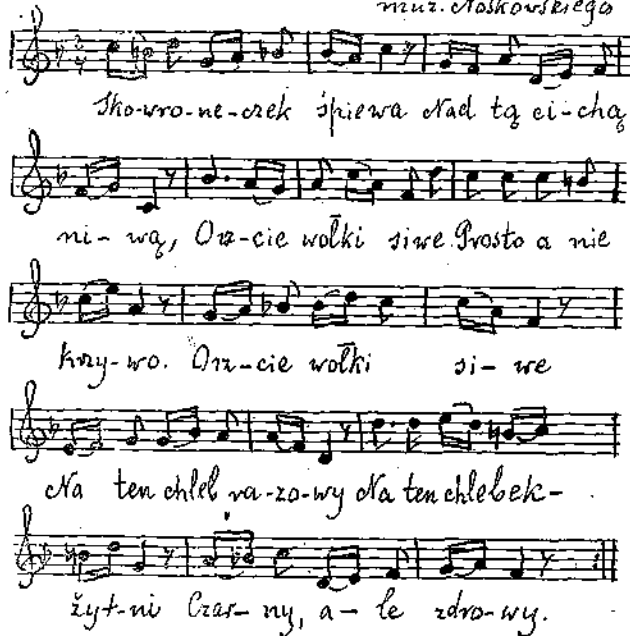 muz. Noskowskiego
Sko-wro-ne-czek śpiewa Nad tą ci-chą
ni-wą, Orz-cie wołki siwe. Prosto a nie
krzy-wo. Orz-cie wołki si-we
Na ten chleb ra-zo-wy Na ten chlebek-
żyt-ni Czar-ny, a-le zdro-wy.